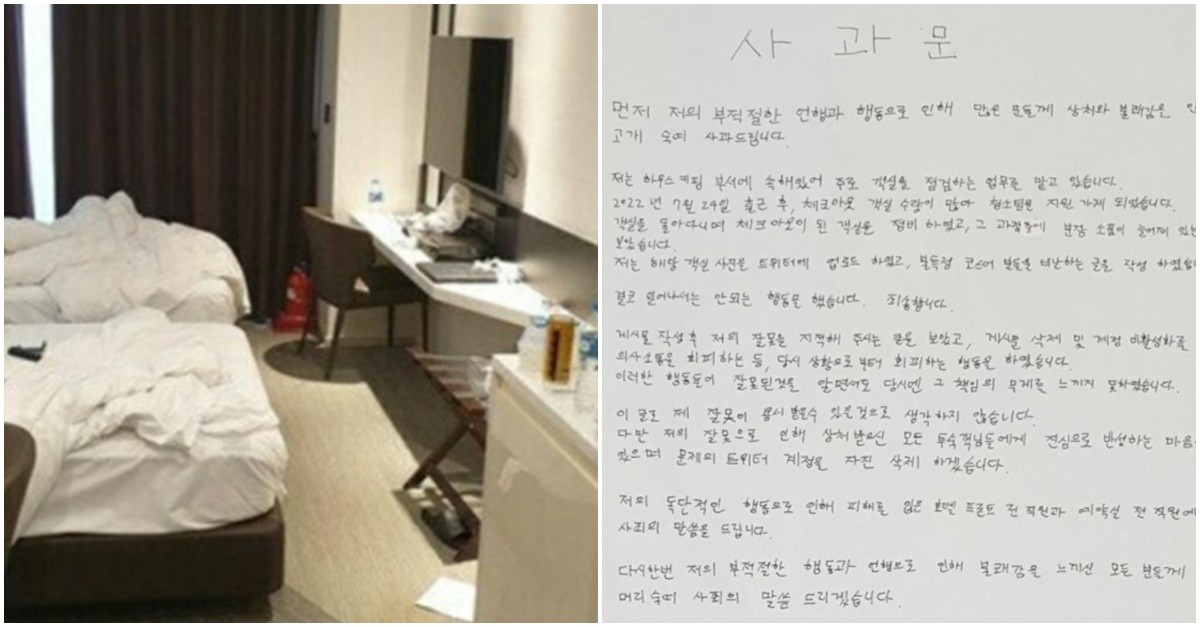 사과문
먼저 저의 부적절한 언행과 행동으로 인해 많은 분들께 상처와 불쾌감을
고개 숙여 사과드립니다.
저는 하우스키핑 부서에 속해있어 주로 객실을 점검하는 업무를 맡고 있습니다.
2022년 7월 24일 출근 후, 체크아웃 객실 수량이 많아 청소팀을 지원 가게 되었습니다.
객실을 돌아다니며 체크아웃이 된 객실을 정비 하였고, 그 과정중에 분장 소품이 늘어져 있는
보았습니다.
저는 해당 객실 사진을 트위터에 업로드 하였고, 불특정 코스어 분들을 비난하는 글을 작성 하였습니
결코 일어나서는 안되는 행동을 했습니다. 죄송합니다.
게시물 작성 후 저의 잘못을 지적해 주시는 글을 보았고, 게시물 삭제 및 계정 비활성화를
의사소통을 회피하는 등, 당시 상황으로부터 회피하는 행동을 하였습니다.
이러한 행동들이 잘못된것을 알면서도 당시엔 그 책임의 무게를 느끼지 못하였습니다.
이 글로 제 잘못이 용서 받을수 있을것으로 생각하지 않습니다.
다만 저의 잘못으로 인해 상처받으신 모든 투숙객님들에게 진심으로 반성하는 마음
있으며 문제의 트위터 계정을 자진 삭제 하겠습니다.
저의 독단적인 행동으로 인해 피해를 입은 호텔 프론트 전 직원과 예약실 전 직원에
사죄의 말씀을 드립니다.
다시한번 저의 부적절한 행동과 언행으로 인해 불쾌감을 느끼신 모든 분들께
머리숙여 사죄의 말씀 드리겠습니다.